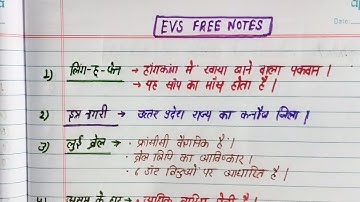 EVS FREE NOTES
Date:
1) लिंग-हु-फेन → हांगकांग में खाया जाने वाला पकवान।
→ यह सांप का मांस होता है।
2) इत्र नगरी → उत्तर प्रदेश राज्य का कन्नौज जिला।
3) लुई ब्रेल → फ्रांसीसी वैज्ञानिक है।
→ ब्रेल लिपि का आविष्कार।
→ 6 डॉट बिन्दुओं पर आधारित है।